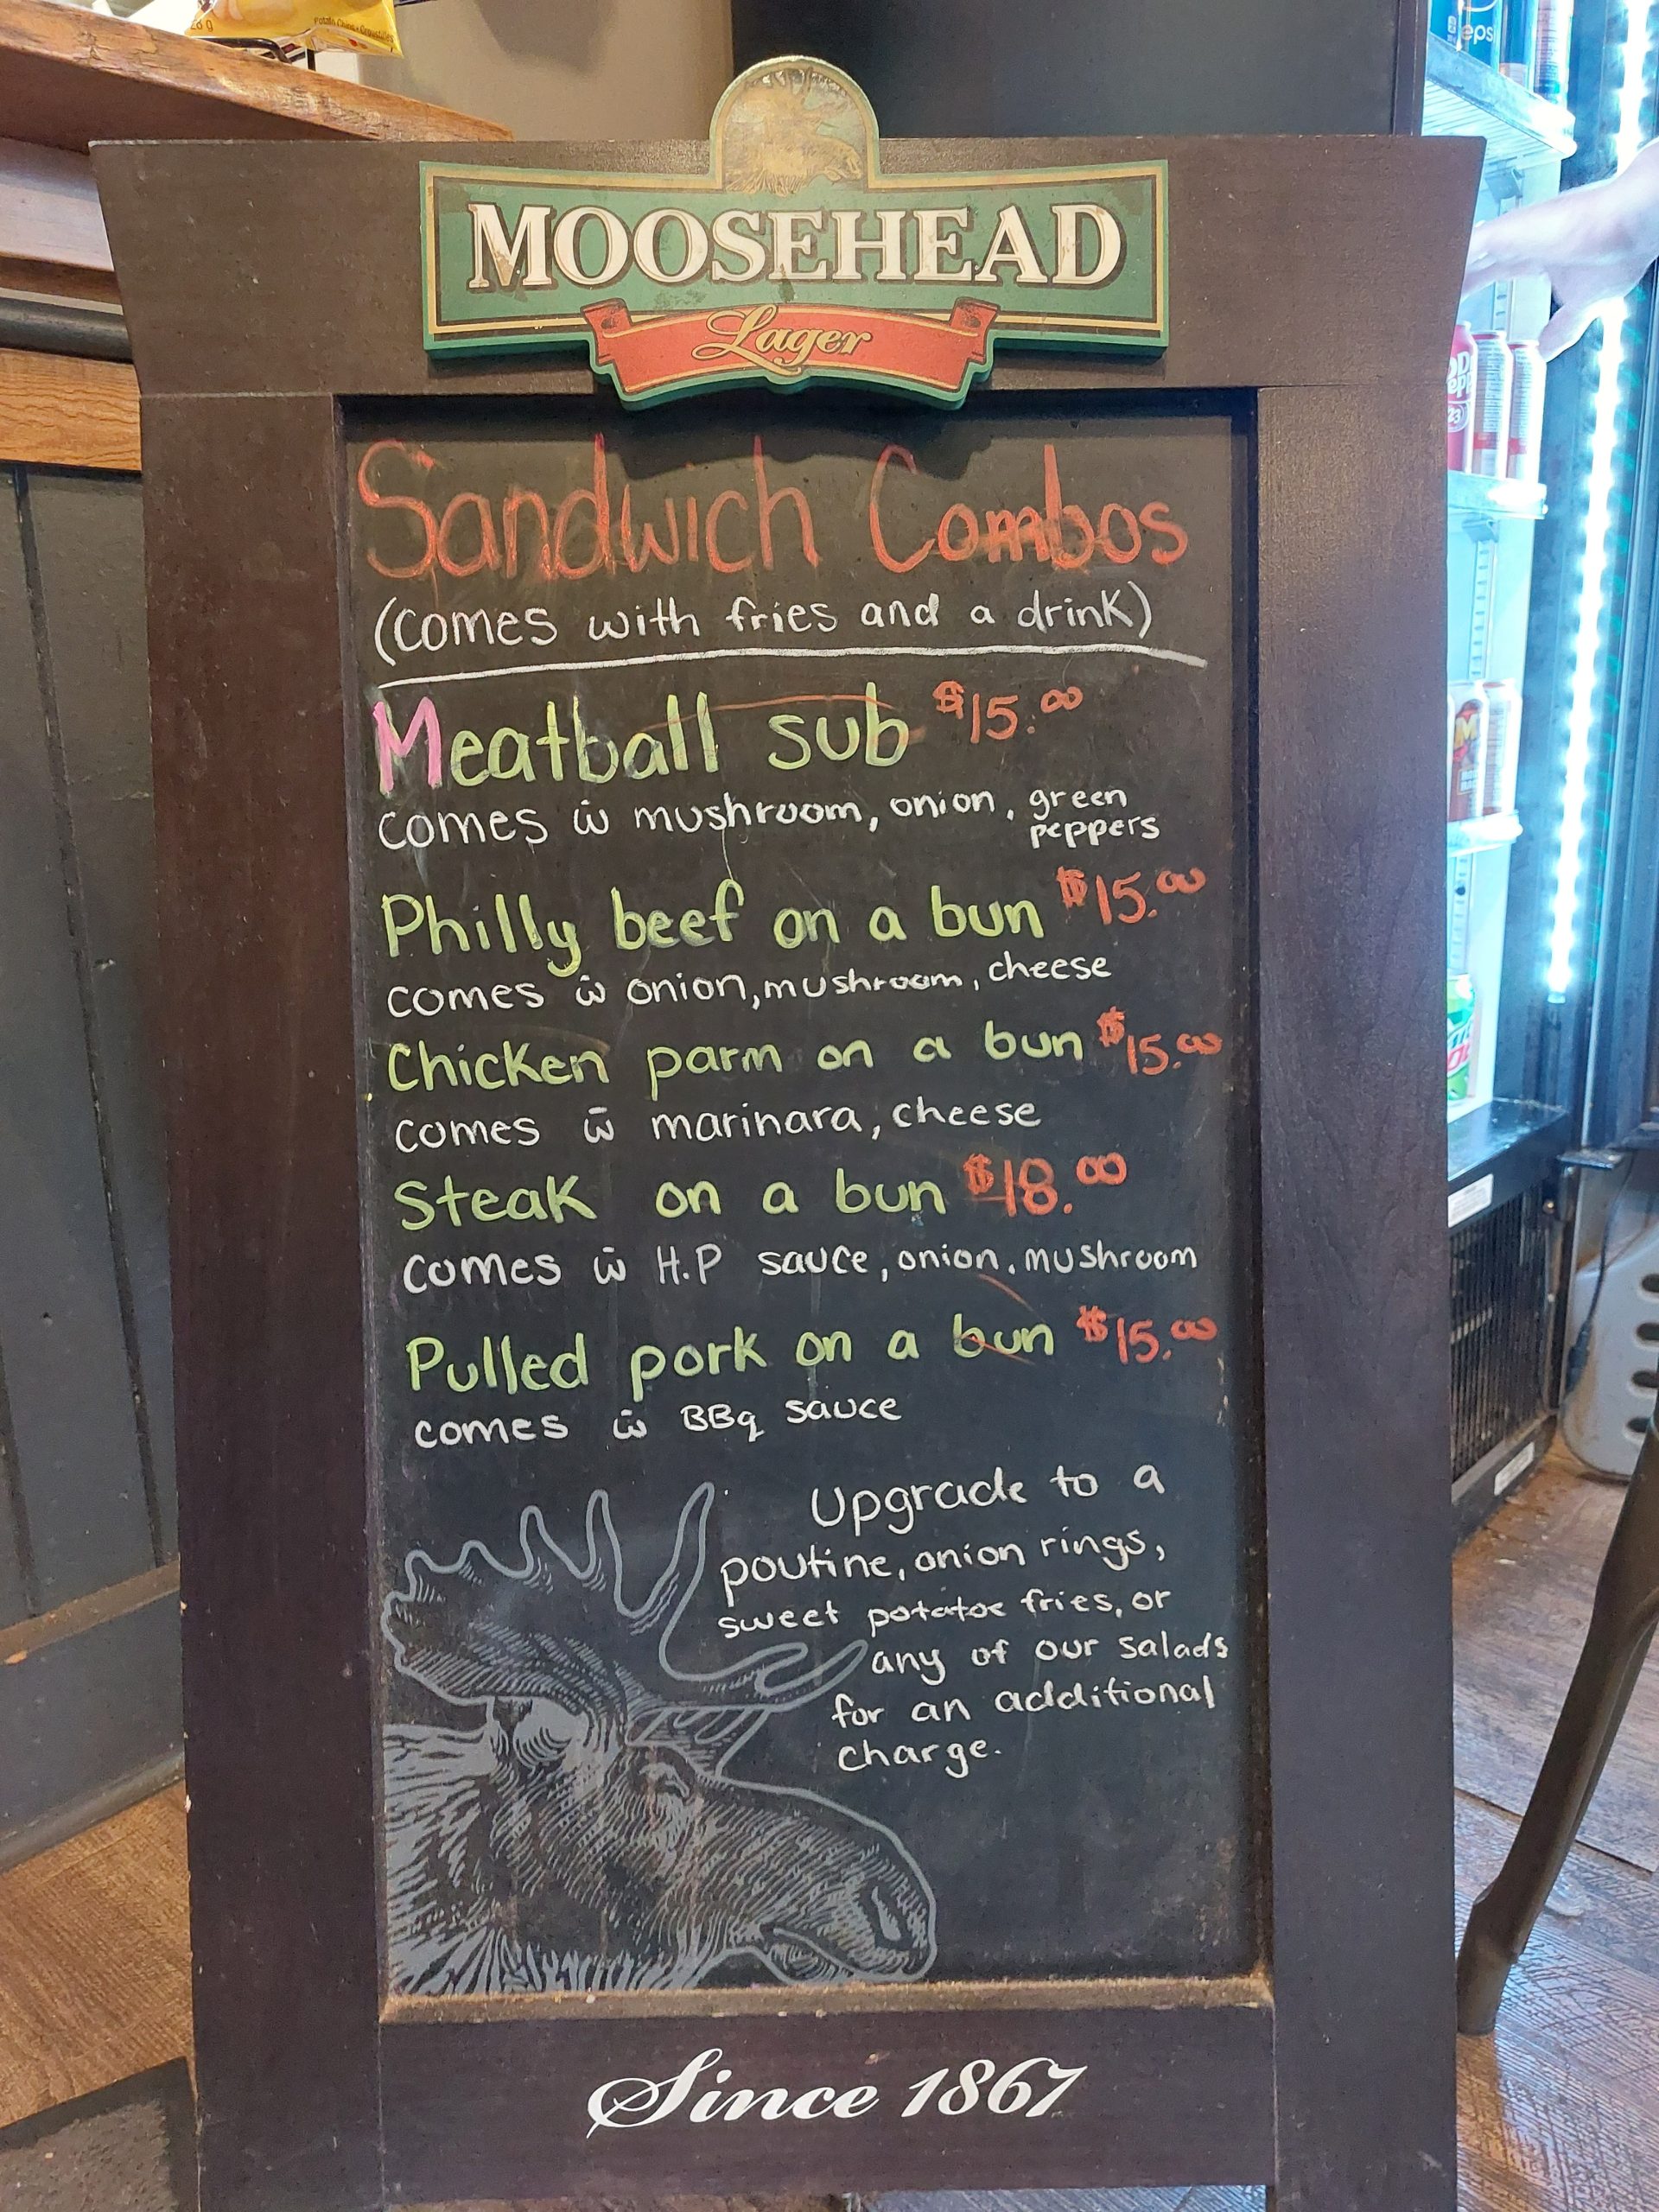 Potato Chips • Croustilles
eps
MOOSEHEAD
Lager
Sandwich Combos
(comes with fries and a drink)
Meatball sub $15.00
comes w̄ mushroom, onion, green
peppers
Philly beef on a bun $15.00
comes w̄ onion, mushroom, cheese
Chicken parm on a bun $15.00
comes w̄ marinara, cheese
Steak on a bun $18.00
comes w̄ H.P sauce, onion, mushroom
Pulled pork on a bun $15.00
comes w̄ BBq sauce
Upgrade to a
poutine, onion rings,
sweet potatoe fries, or
any of our salads
for an additional
charge.
Since 1867